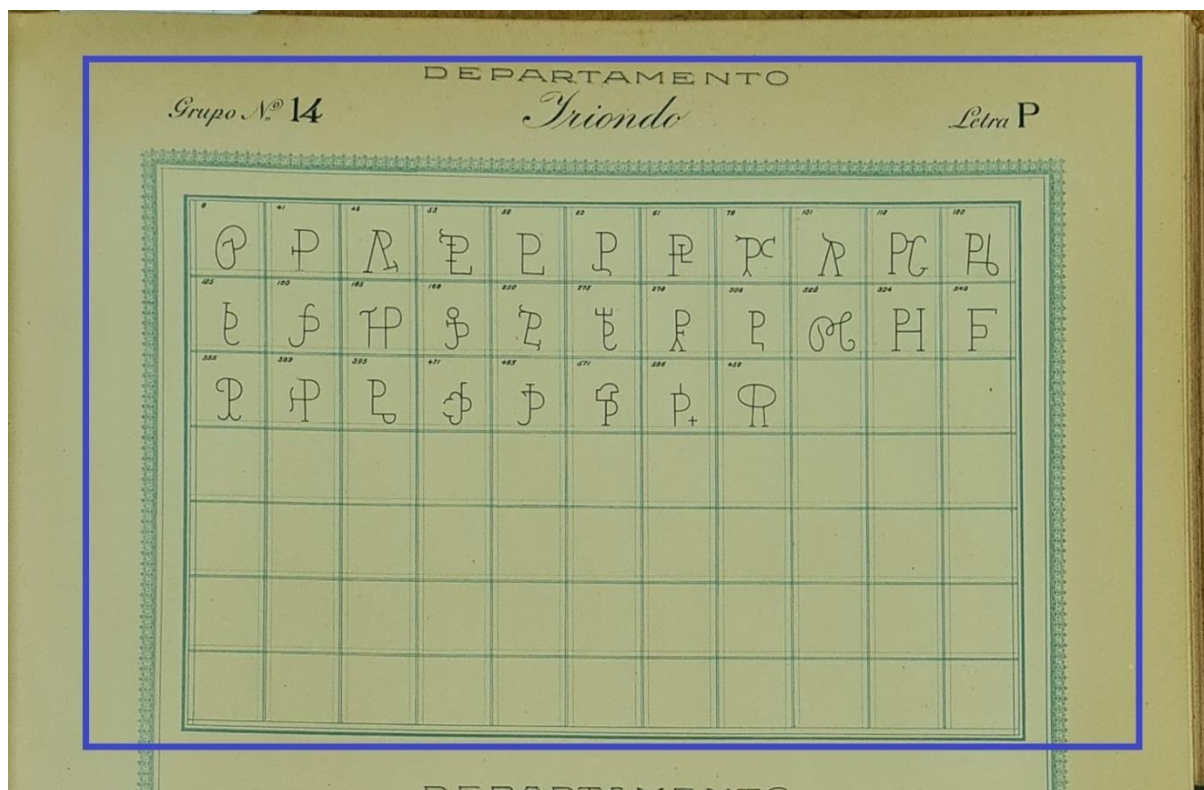 DEPARTAMENTO
Grupo Nº 14 Iriondo Letra P
9 41 46 53 58 60 61 79 101 118 120
125 160 165 168 250 275 278 306 322 324 349
355 389 395 471 485 571 586 452
DEPARTAMENTO